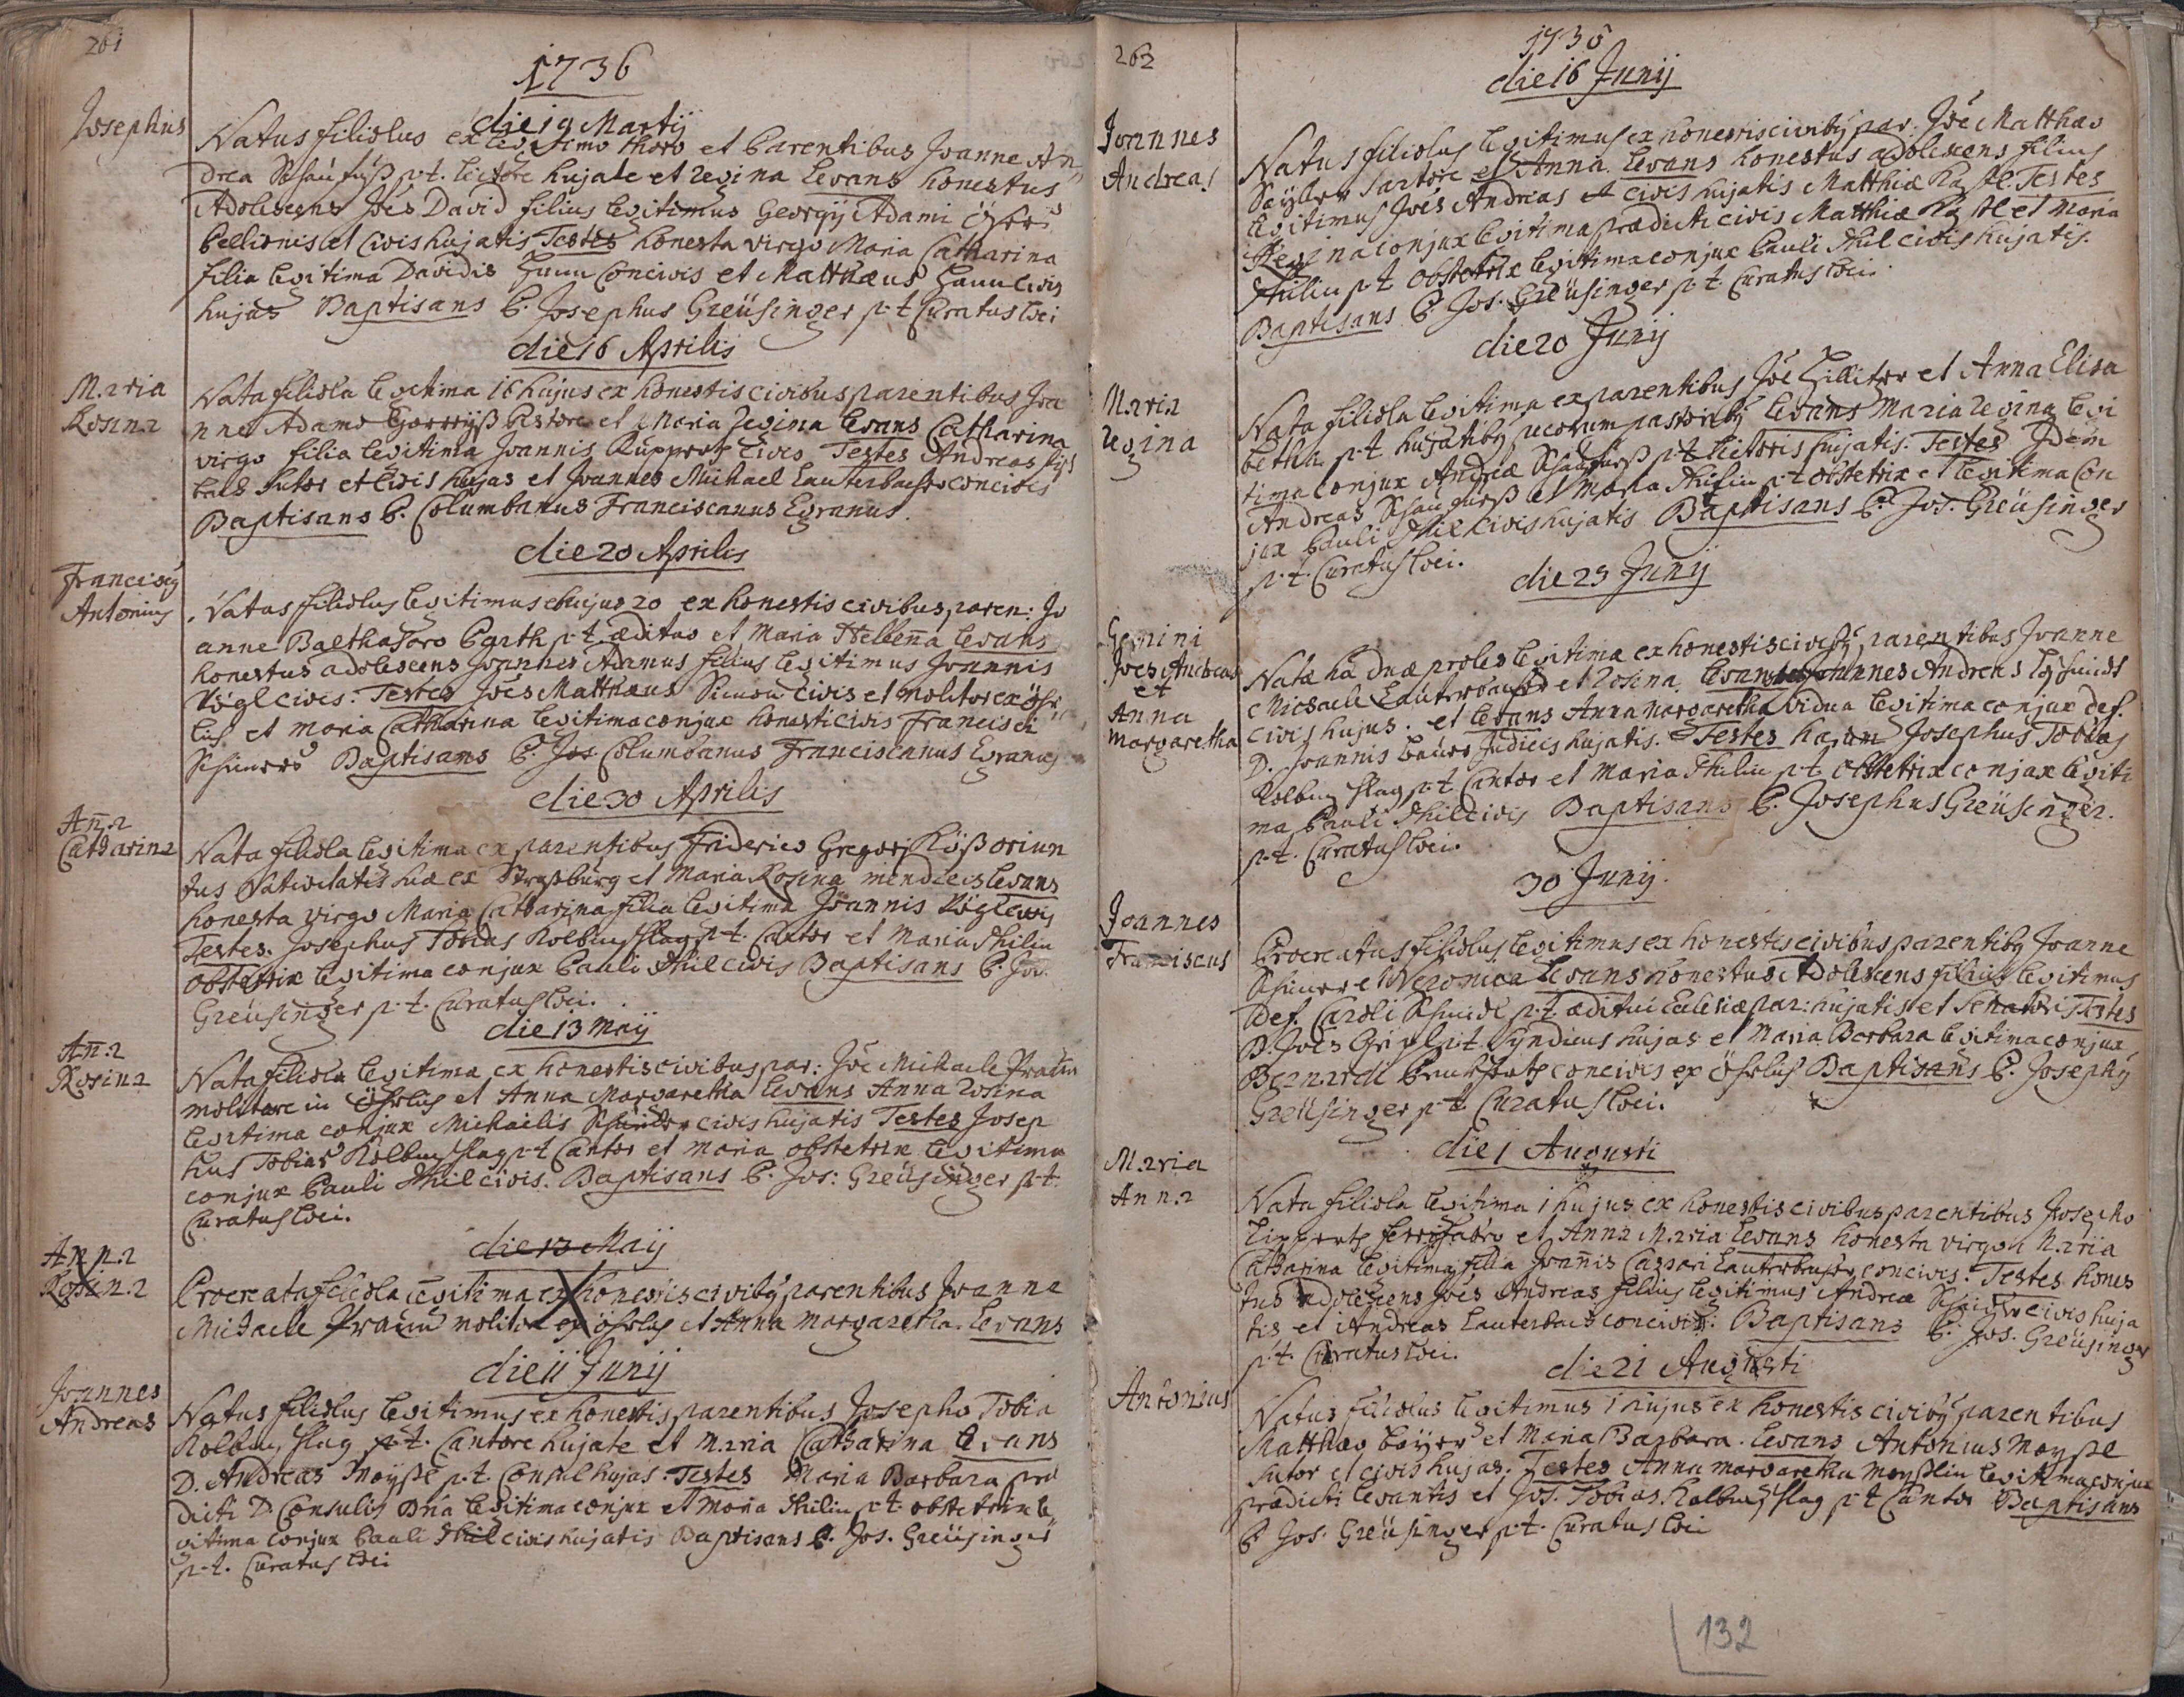 261
1736
die 19 Martij
Josephus
Natus filiolus ex legitimo thoro et Parentibus Joanne An
drea p.t. lictore hujate et Regina Levans honestus
Adolescens Joēs David filius legitimus Georgij Adami
Pellionis et Civis hujatis Testes honesta virgo Maria Catharina
filia legitima Davidis concivis et Matthæus civis
hujas Baptisans P. Josephus Greüsinger p.t. Curatus loci
die 16 Aprilis
Maria
Rosina
Nata filiola legitima 16 hujus ex honestis civibus parentibus Joa
nne Adamo pistore et Maria Regina Levans Catharina
virgo filia legitima Joannis Ruppert civis Testes Andreas
sutor et civis hujas et Joannes Michael Lauterbacher concivis
Baptisans P. Columbanus Franciscanus Egranus.
die 20 Aprilis
Franciscq
Antonius
Natus filiolus legitimus hujus 20 ex honestis civibus paren: Jo
anne Balthasaro Barth p.t. ædituo et Maria Hellena Levans
honestus adolescens Joannes Adamus filius legitimus Joannis
Vögl civis: Testes Joēs Matthæus Simon civis et molitor ex
et Maria Catharina legitima conjux honesti civis Francisci
Baptisans P. Jos Columbanus Franciscanus Egranus
die 30 Aprilis
Ann̄a
Catharina
Nata filiola legitima ex parentibus Friderico Gregorj oriun
tus Nativitatis suæ ex Straßburg et Maria Rosina mendicis Levans
honesta virgo Maria Catharina filia legitima Joannis Vögl civis
Testes. Josephus Tobias Kolbenschlag p.t. Cantor et Maria Thilin
obstetrix legitima conjux Pauli Thil civis Baptisans P. Jos.
Greüsinger p.t. Curatus loci.
die 13 Maij
Ann̄a
Rosina
Nata filiola legitima ex honestis civibus par: Joē Michaele Praun
molitore in et Anna Margaretha Levans Anna Rosina
legitima conjux Michaelis civis hujatis Testes Josep
hus Tobias Kolbenschlag p.t. Cantor et Maria obstetrix legitima
conjux Pauli Thil civis. Baptisans P. Jos: Greüsinger p.t.
Curatus loci.
die 13 Maij
Anna
Rosina
Procreata filiola legitima ex honestis civibq parentibus Joanne
Michaele Praun molitor ex et Anna Margaretha. Levans
die 11 Junij
Joannes
Andreas
Natus filiolus legitimus ex honestis parentibus Josepho Tobia
Kolbenschlag p.t. Cantore hujate et Maria Catharina Levans
D. Andreas Moyßl p.t. Consul hujas. Testes Maria Barbara præ
dicti D. Consulis Dn̄a legitima conjux et Maria Thilin p.t. obstetrix le
gitima conjux Pauli Thil civis hujatis Baptisans P. Jos. Greüsinger
p.t. Curatus loci
262
1736
die 16 Junij
Joannes
Andreas
Natus filiolus legitimus ex honestis civibq par. Joē Matthæo
Sartore et Anna. Levans honestus adolescens filius
legitimus Joēs Andreas et civis hujatis Matthiæ Testes
Regina conjux legitima prædicti civis Matthiæ et Maria
Thilin p.t. obstetrix legitima conjux Pauli Thil civis hujatis.
Baptisans P. Jos. Greüsinger p.t. Curatus loci.
die 20 Junij
Maria
Regina
Nata filiola legitima ex parentibus Joē et Anna Elisa
betha p.t. hujatibq pecorum pastoribq Levans Maria Regina legi
tima conjux Andreæ p.t. lictoris hujatis. Testes Idem
Andreas et Maria Thilin p.t. obstetrix et legitima con
jux Pauli Thil civis hujatis Baptisans P. Jos. Greüsinger
p.t. Curatus loci.
die 25 Junij
Gemini
Joēs Andreas
et
Anna
Margaretha
Natæ hæ duæ proles legitima ex honestis civibq parentibus Joanne
Michaele Lauterbacher et Rosina. Levans Joannes Andreas
civis hujus. et Levans Anna Margaretha Vidua legitima conjux def.
D. Joannis Judicis hujatis. Testes harum Josephus Tobias
Kolbenschlag p.t. Cantor et Maria Thilin p.t. obstetrix conjux legiti
ma Pauli Thil civis Baptisans P. Josephus Greüsinger.
p.t. Curatus loci.
30 Junij.
Joannes
Franciscus
Procreatus filiolus legitimus ex honestis civibus parentibq Joanne
et Veronica Levans honestus Adolescens filius legitimus
def. Caroli Schmidt p.t. æditui Ecclesiæ par: hujatis et Senatori Testes
D. Joēs p.t. Syndicus hujas et Maria Barbara legitima conjux
Bernardi concivis ex Baptisans P. Josephq
Greüsinger p.t. Curatus loci.
die 1 Augusti
Maria
Anna
Nata filiola legitima 1 hujus ex honestis civibus parentibus Josepho
ferrifabro et Anna Maria Levans honesta virgo Maria
Catharina legitima filia Joan̄is Caspari Lauterbacher concivis. Testes hones
tus adolescens Joēs Andreas filius legitimus Andreæ civis huja
tis et Andreas Lauterbach concivis. Baptisans P. Jos. Greüsinger
p.t. Curatus loci.
die 21 Augusti
Antonius
Natus filiolus legitimus 1 hujus ex honestis civibq parentibus
Matthæo et Maria Barbara. Levans Antonius Moyßl
sutor et civis hujas. Testes Anna Margaretha Moyßlin legitima conjux
prædicti levantis et Jos. Tobias Kolbenschlag p.t. Cantor Baptisans
P. Jos. Greüsinger p.t. Curatus loci
132